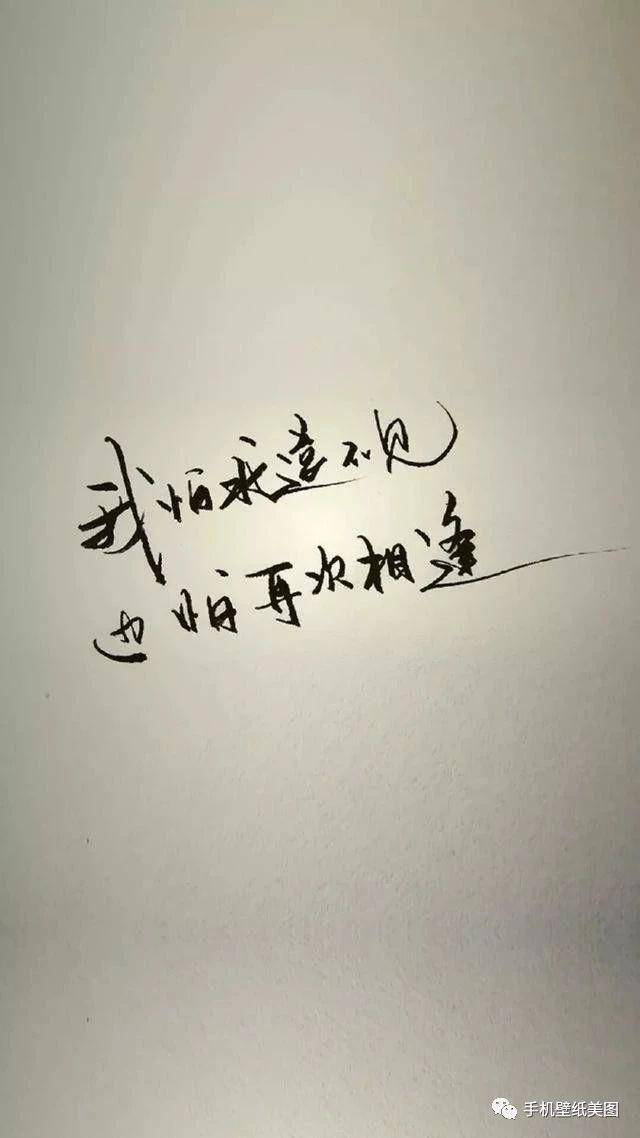 我怕永遠不见
也怕再次相逢
手机壁纸美图